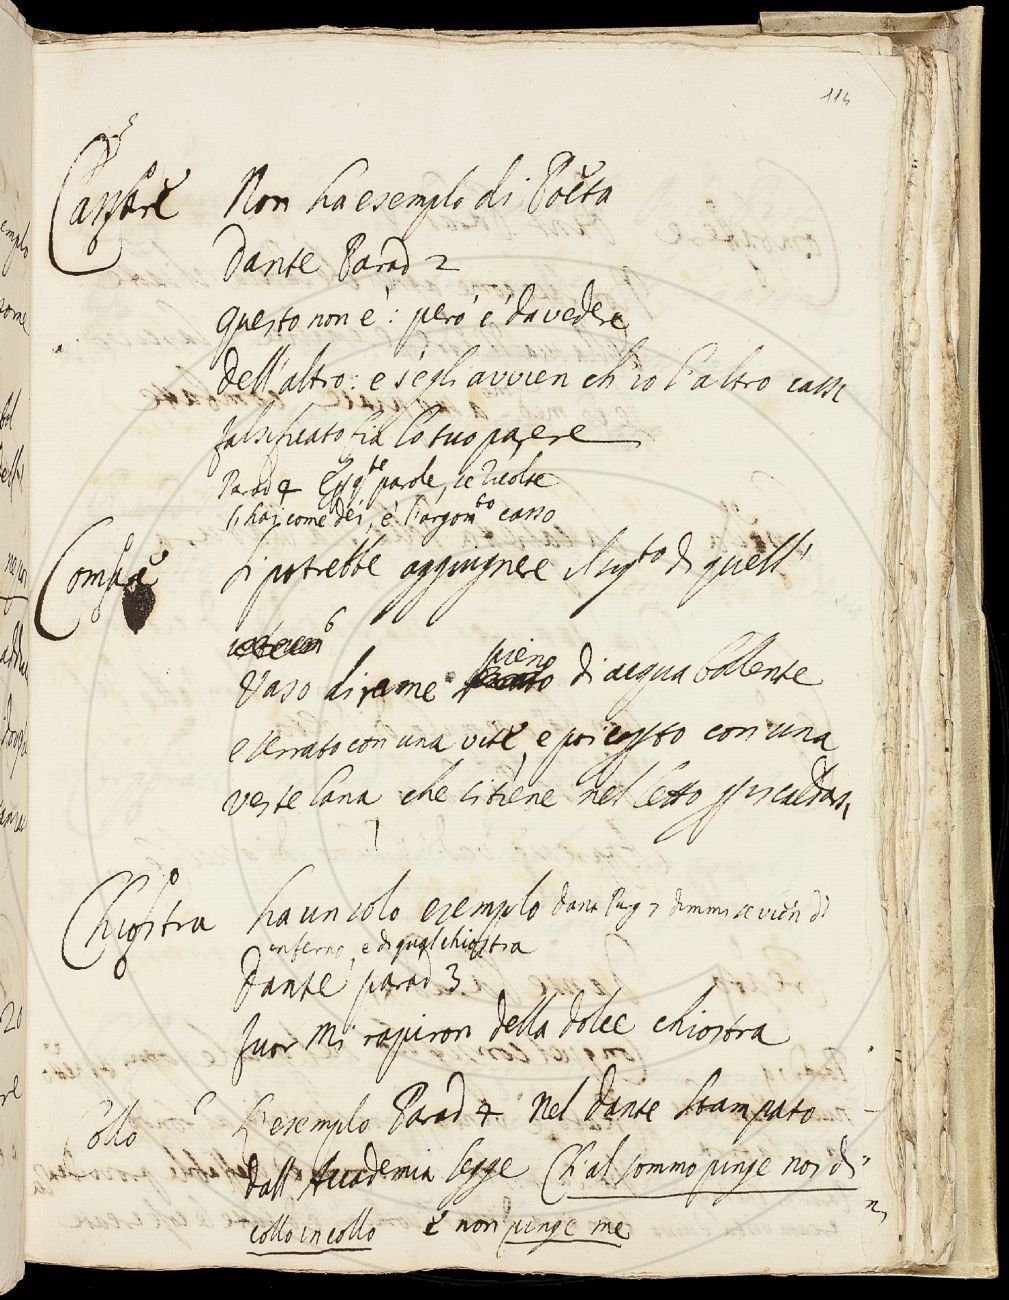 114
Non ha esemplo di Poeta
Dante Parad 2
questo non e': però e' da vedere
dell'altro: e s'egli avvien ch'io l'altro cassi
falsificato fia lo tuo parere
Parad 4 parole, se ricolte
l'hai come dei, e' l'argom.to casso
si potrebbe aggiugnere il sig.to di quell'
Vaso di rame pieno di acqua bollente
e serrato con una vite, e poi con una
veste lana che si tiene nel letto
Chiostra ha un solo esemplo Dant Purg 7 dimmi se vien di
inferno, e di qual chiostra
Dante parad 3
fuor mi rapiron della dolce chiostra
Collo L'esemplo Parad 4 Nel Dante stampato
dall'Accademia legge Ch'al sommo pinge noi di
collo in collo e non pinge me